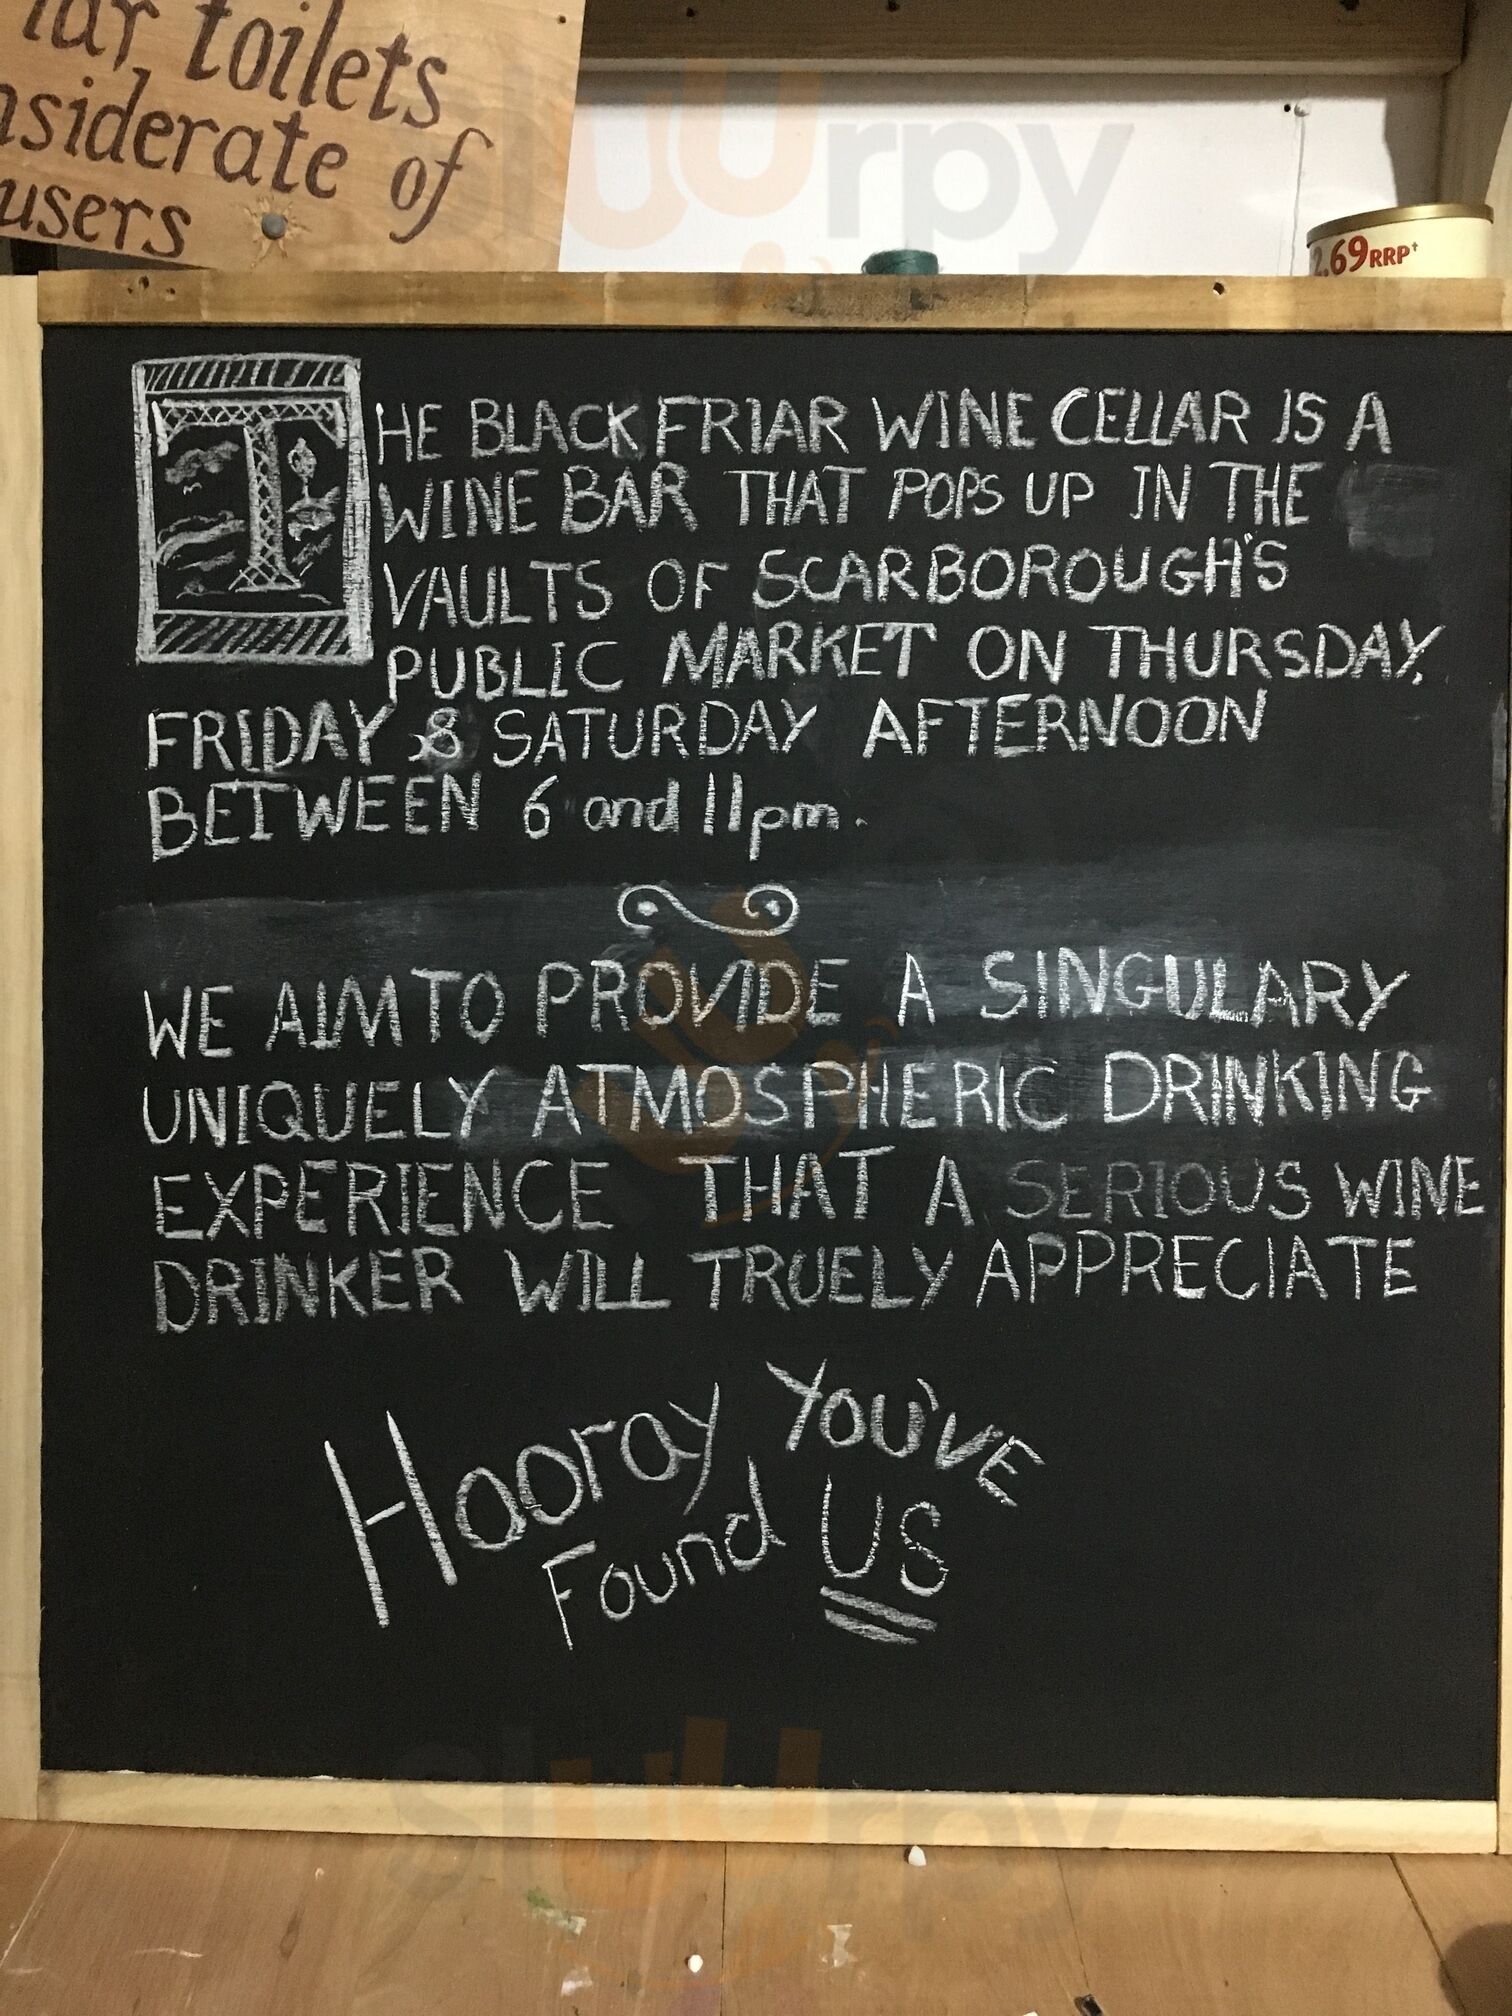 iar toilets
nsiderate of
users
sluurpy
2.69 RRP†
THE BLACK FRIAR WINE CELLAR IS A
WINE BAR THAT POPS UP IN THE
VAULTS OF SCARBOROUGH'S
PUBLIC MARKET ON THURSDAY,
FRIDAY & SATURDAY AFTERNOON
BETWEEN 6 and 11pm.
WE AIM TO PROVIDE A SINGULARY
UNIQUELY ATMOSPHERIC DRINKING
EXPERIENCE THAT A SERIOUS WINE
DRINKER WILL TRUELY APPRECIATE
Hooray YOU'VE
Found US
sluurpy